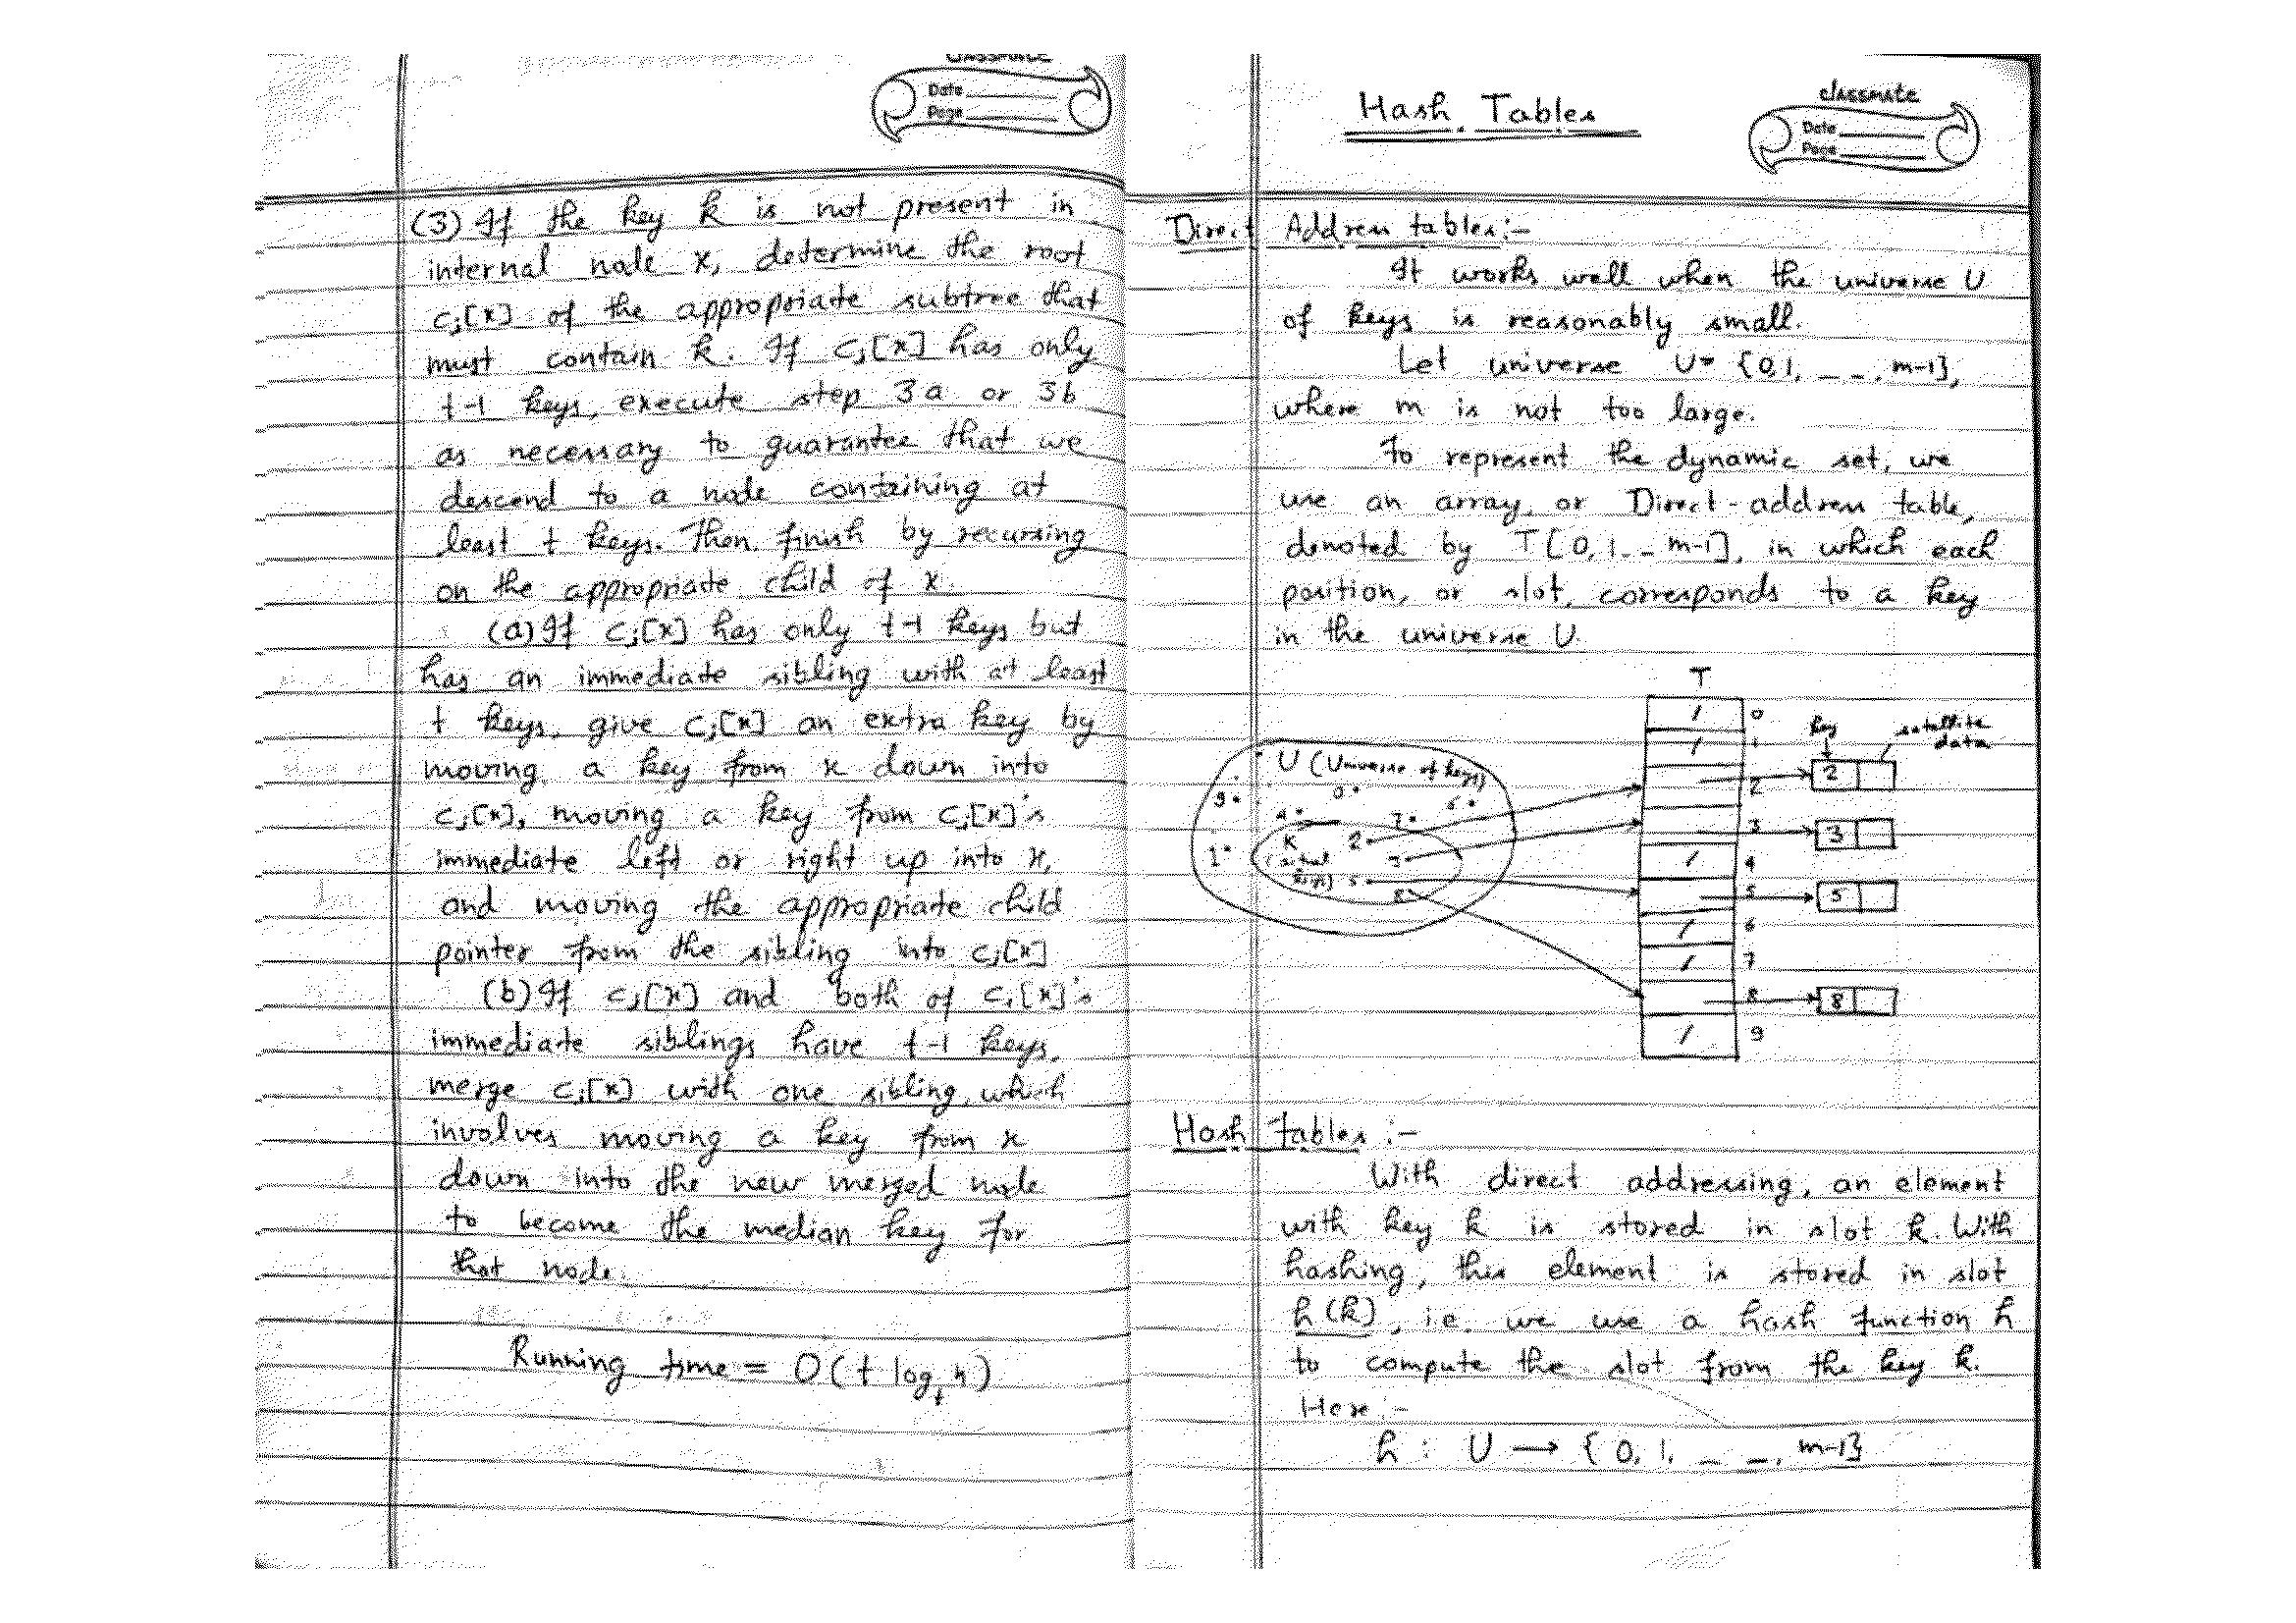 classmate
Date
Page
(3) If the key k is not present in
internal node x, determine the root
ci[x] of the appropriate subtree that
must contain k. If ci[x] has only
t-1 keys, execute step 3a or 3b
as necessary to guarantee that we
descend to a node containing at
least t keys. Then, finish by recursing
on the appropriate child of x.
(a) If ci[x] has only t-1 keys but
has an immediate sibling with at least
t keys, give ci[x] an extra key by
moving a key from x down into
ci[x], moving a key from ci[x]'s
immediate left or right up into x,
and moving the appropriate child
pointer from the sibling into ci[x]
(b) If ci[x] and both of ci[x]'s
immediate siblings have t-1 keys,
merge ci[x] with one sibling, which
involves moving a key from x
down into the new merged node
to become the median key for
that node.
Running time = O(t log_t n)
Hash Tables
classmate
Date
Page
Direct Address tables:-
It works well when the universe U
of keys is reasonably small.
Let universe U = {0,1, _ _ , m-1},
where m is not too large.
To represent the dynamic set, we
use an array, or Direct-address table,
denoted by T[0, 1 _ _ m-1], in which each
position, or slot, corresponds to a key
in the universe U.
T
U (Universe of keys)
9
0
6
4
7
1
K
(actual
keys)
2
3
5
8
0
1
2
3
4
5
6
7
8
9
key
satellite
data
2
3
5
8
Hash Tables :-
With direct addressing, an element
with key k is stored in slot k. With
hashing, this element is stored in slot
h(k), i.e. we use a hash function h
to compute the slot from the key k.
Here:-
h : U → {0, 1, _ _, m-1}